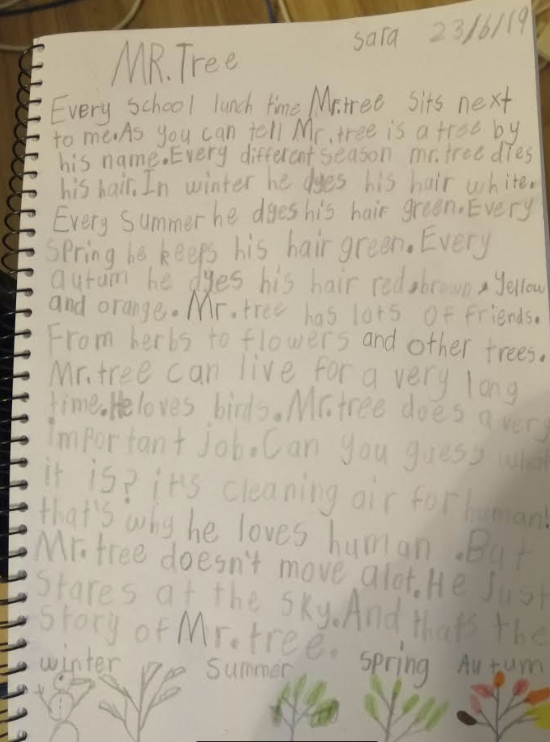 sara 23/6/19
MR.Tree
Every school lunch time Mr.tree sits next
to me.As you can tell Mr.tree is a tree by
his name.Every different season mr.tree dies
his hair.In winter he dyes his hair white.
Every summer he dyes his hair green.Every
spring he keeps his hair green.Every
autum he dyes his hair red,brown, yellow
and orange.Mr.tree has lots of friends.
From herbs to flowers and other trees.
Mr.tree can live for a very long
time.He loves birds.Mr.tree does a very
important job.Can you guess what
it is? it's cleaning air for human!
that's why he loves human .But
Mr.tree doesn't move alot.He Just
stares at the sky.And thats the
story of Mr.tree.
winter summer spring Autum